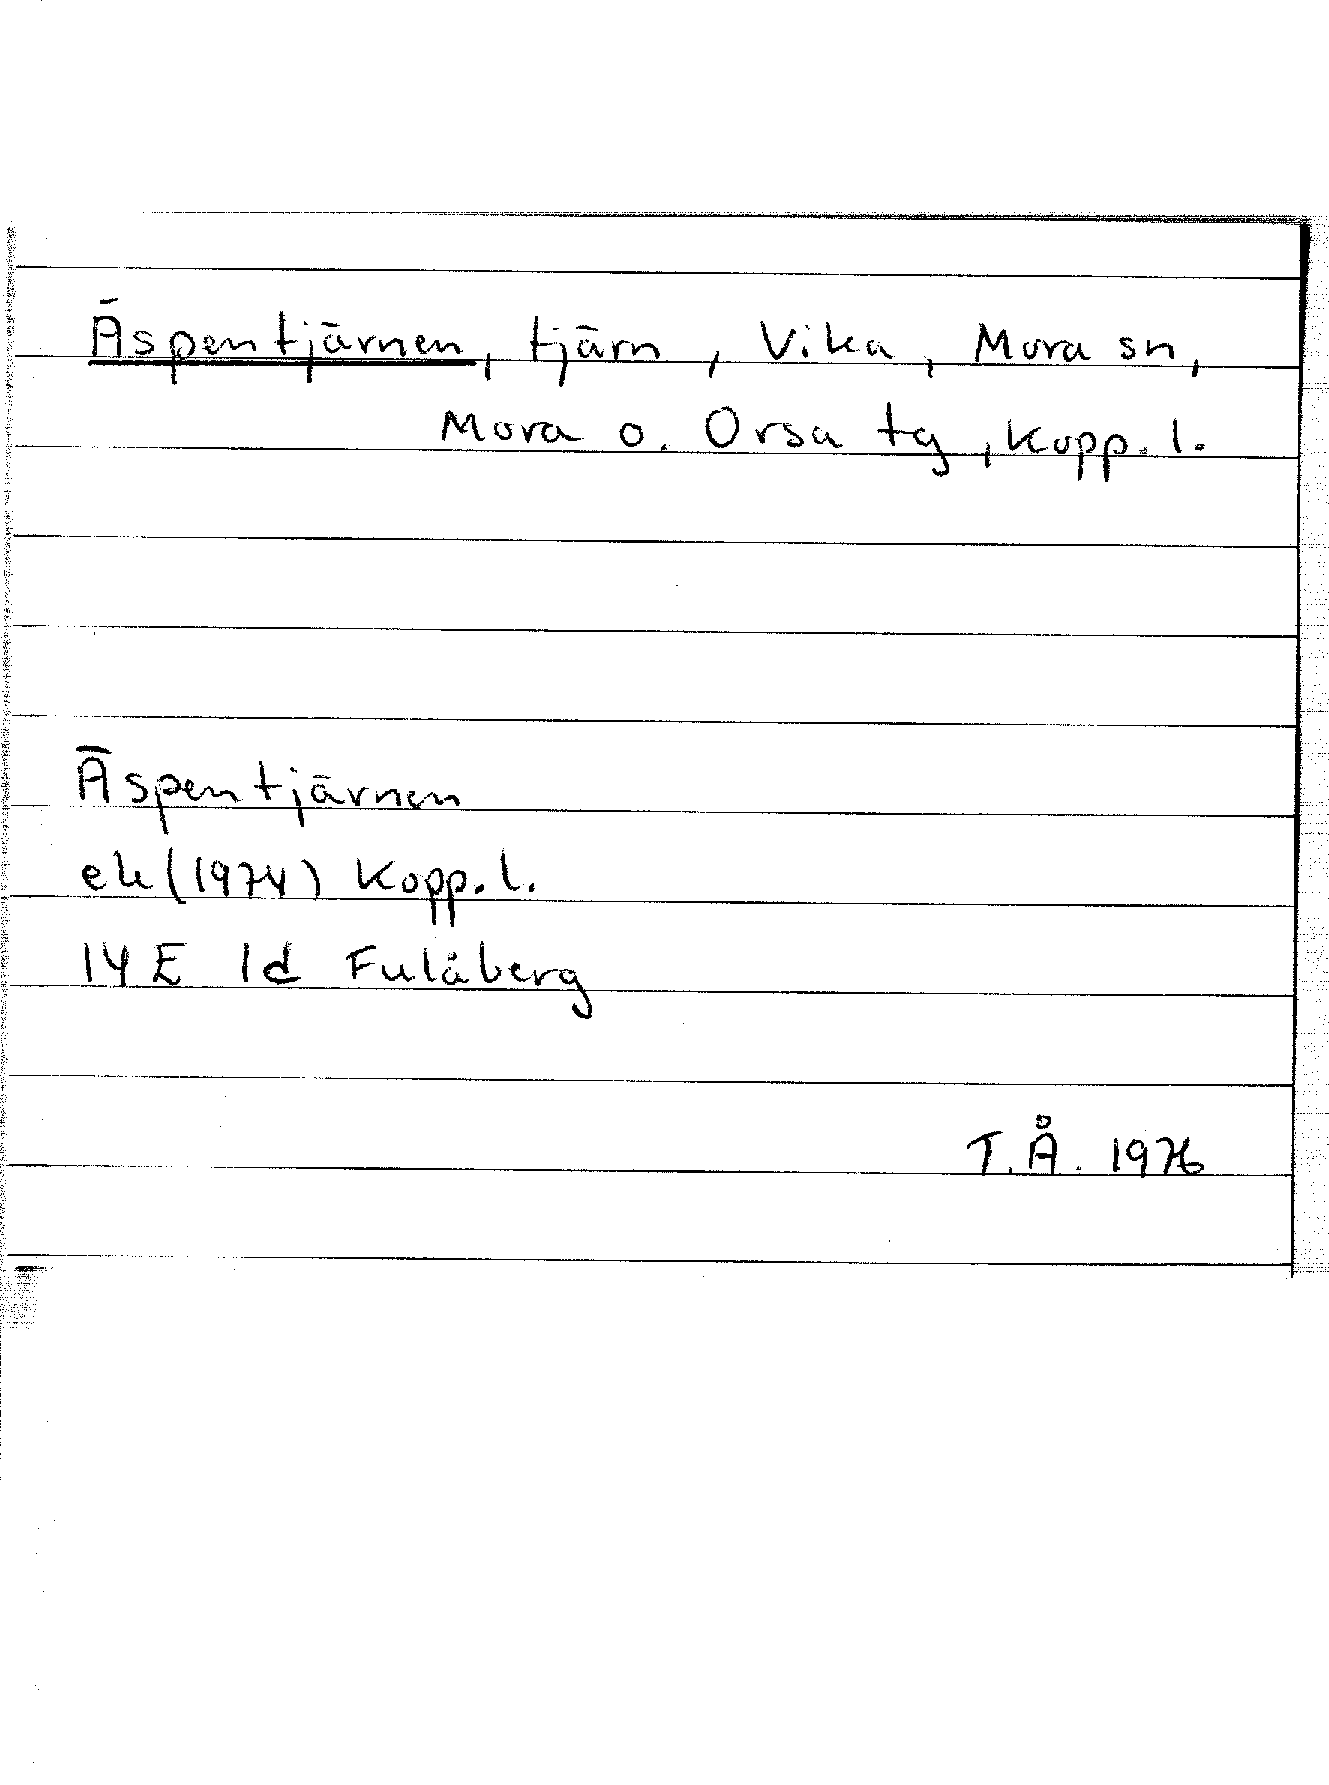 Äspentjärnen, tjärn, Vika, Mora sn,
Mora o. Orsa tg, Kopp. l.
Äspentjärnen
ek (1974) Kopp. l.
14 E 1d Fulåberg
T. Å. 1976